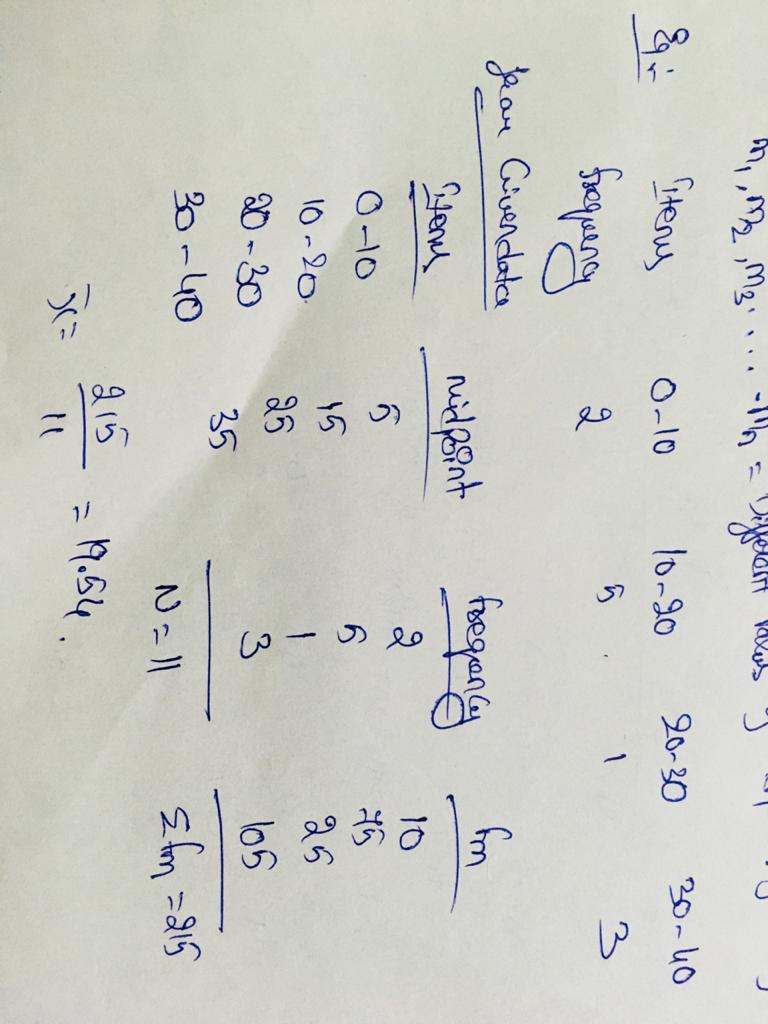 m1, m2, m3 .... mn = Different values of
Eg:-
Items 0-10 10-20 20-30 30-40
frequency 2 5 1 3
from Given data
Items midpoint frequency fm
0-10 5 2 10
10-20 15 5 75
20-30 25 1 25
30-40 35 3 105
N = 11 Σfm = 215
x̄ = 215/11 = 19.54.